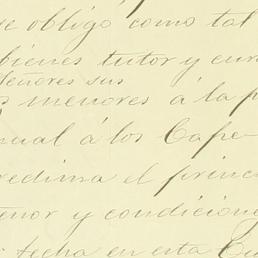 se obligó como tal
bienes tutor y cura
Señores sus
menores á la p
nual á los Cape-
redima el princi
enor y condicione
fecha en esta